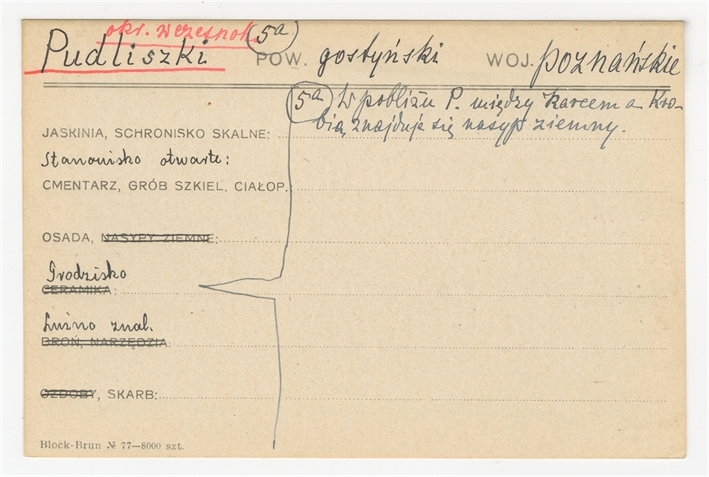 okr. wczesnok. 5a
Pudliszki POW. gostyński WOJ. poznańskie
5a W pobliżu P. między Karcem a Kro-
bią znajduje się nasyp ziemny.
JASKINIA, SCHRONISKO SKALNE:
Stanowisko otwarte:
CMENTARZ, GRÓB SZKIEL, CIAŁOP.
OSADA, NASYPY ZIEMNE:
Grodzisko
CERAMIKA:
Luźno znal.
BROŃ, NARZĘDZIA:
OZDOBY, SKARB:
Block-Brun № 77—8000 szt.